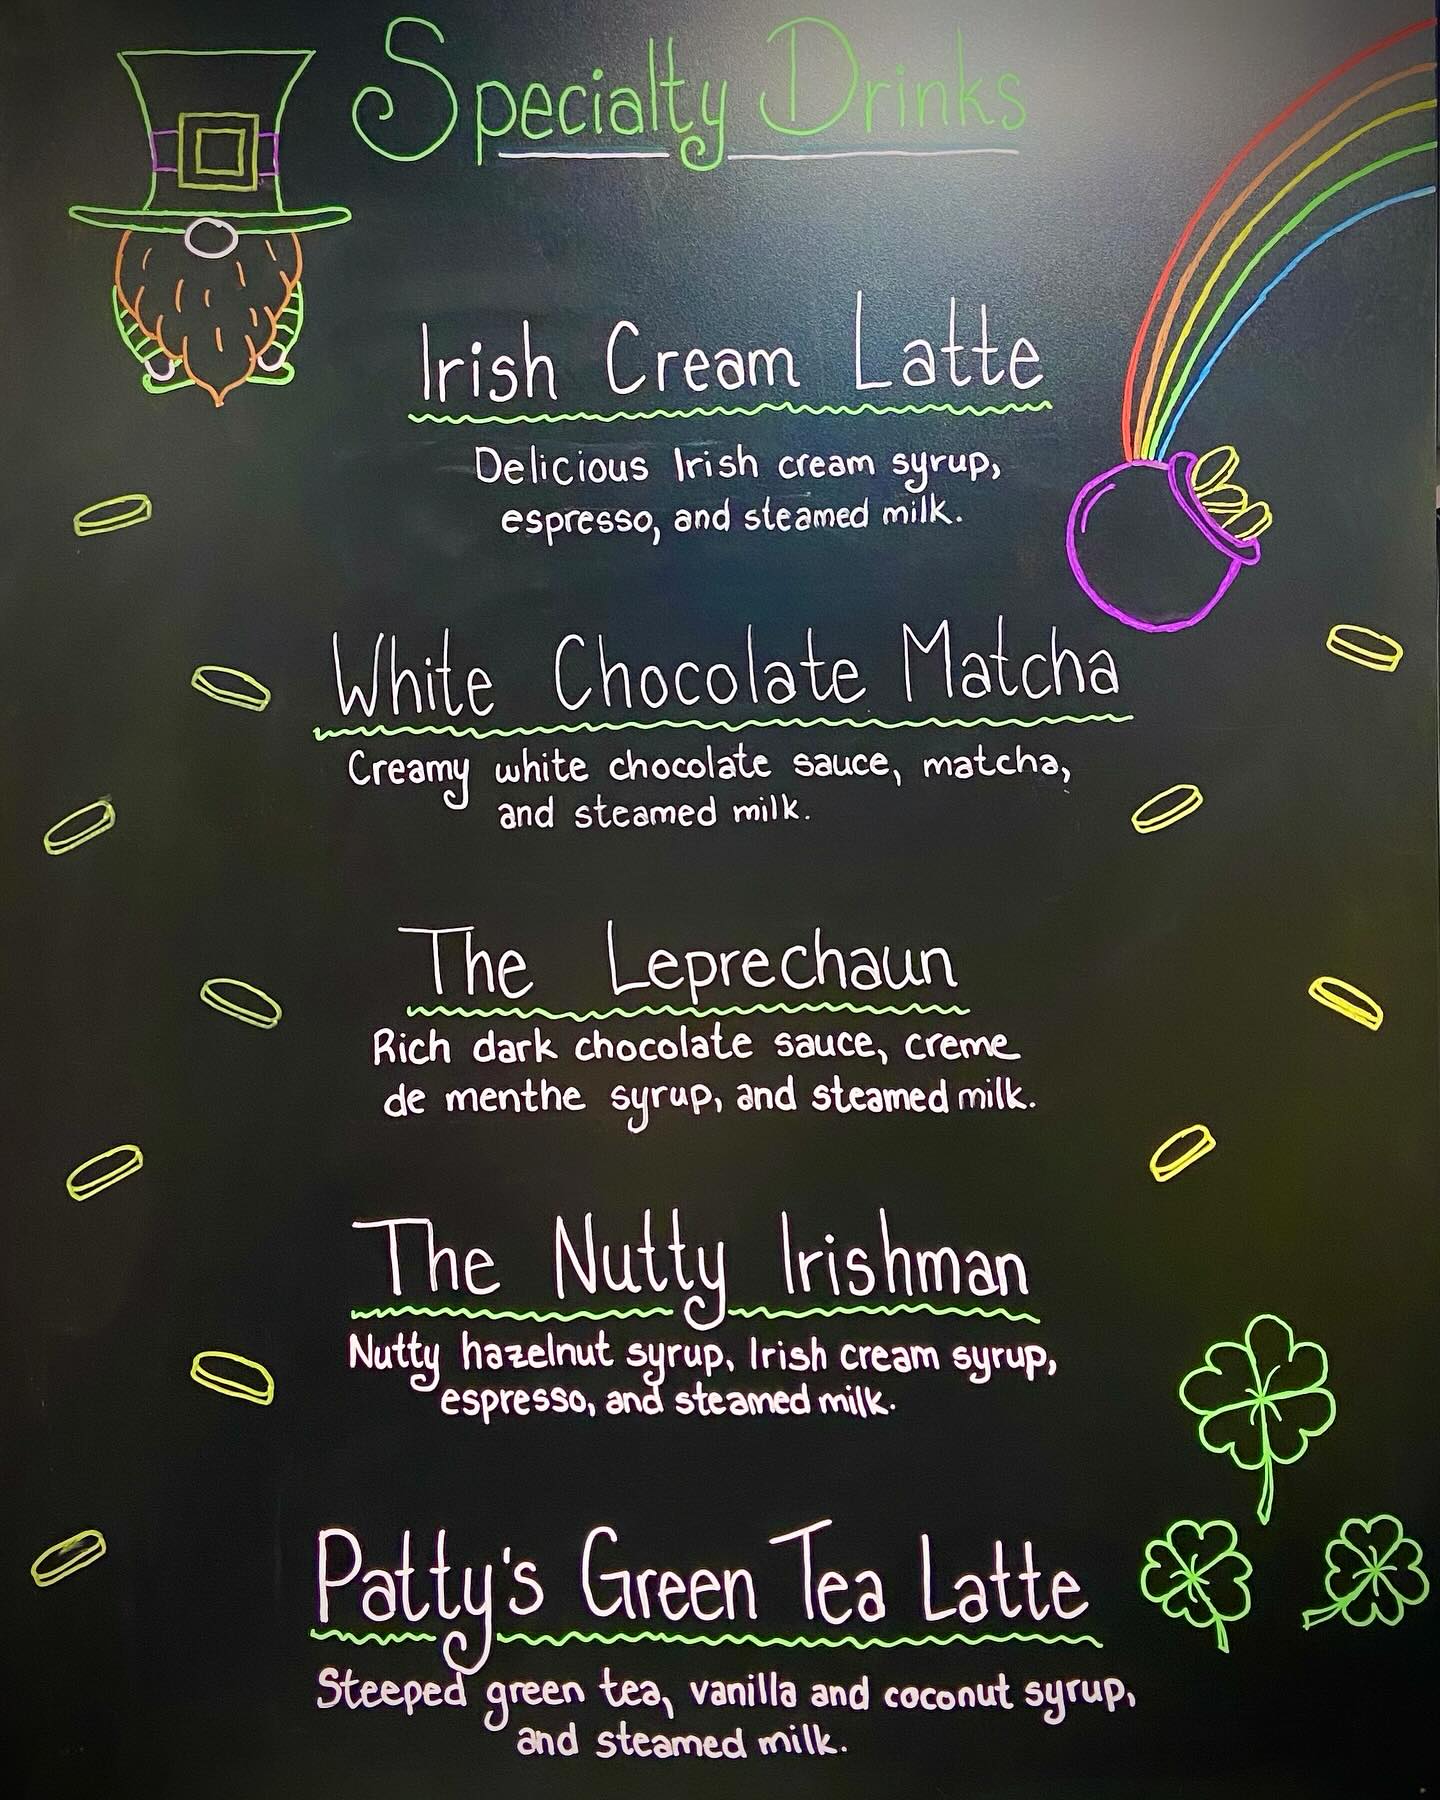 Specialty Drinks
Irish Cream Latte
Delicious Irish cream syrup,
espresso, and steamed milk.
White Chocolate Matcha
Creamy white chocolate sauce, matcha,
and steamed milk.
The Leprechaun
Rich dark chocolate sauce, creme
de menthe syrup, and steamed milk.
The Nutty Irishman
Nutty hazelnut syrup, Irish cream syrup,
espresso, and steamed milk.
Patty's Green Tea Latte
Steeped green tea, vanilla and coconut syrup,
and steamed milk.